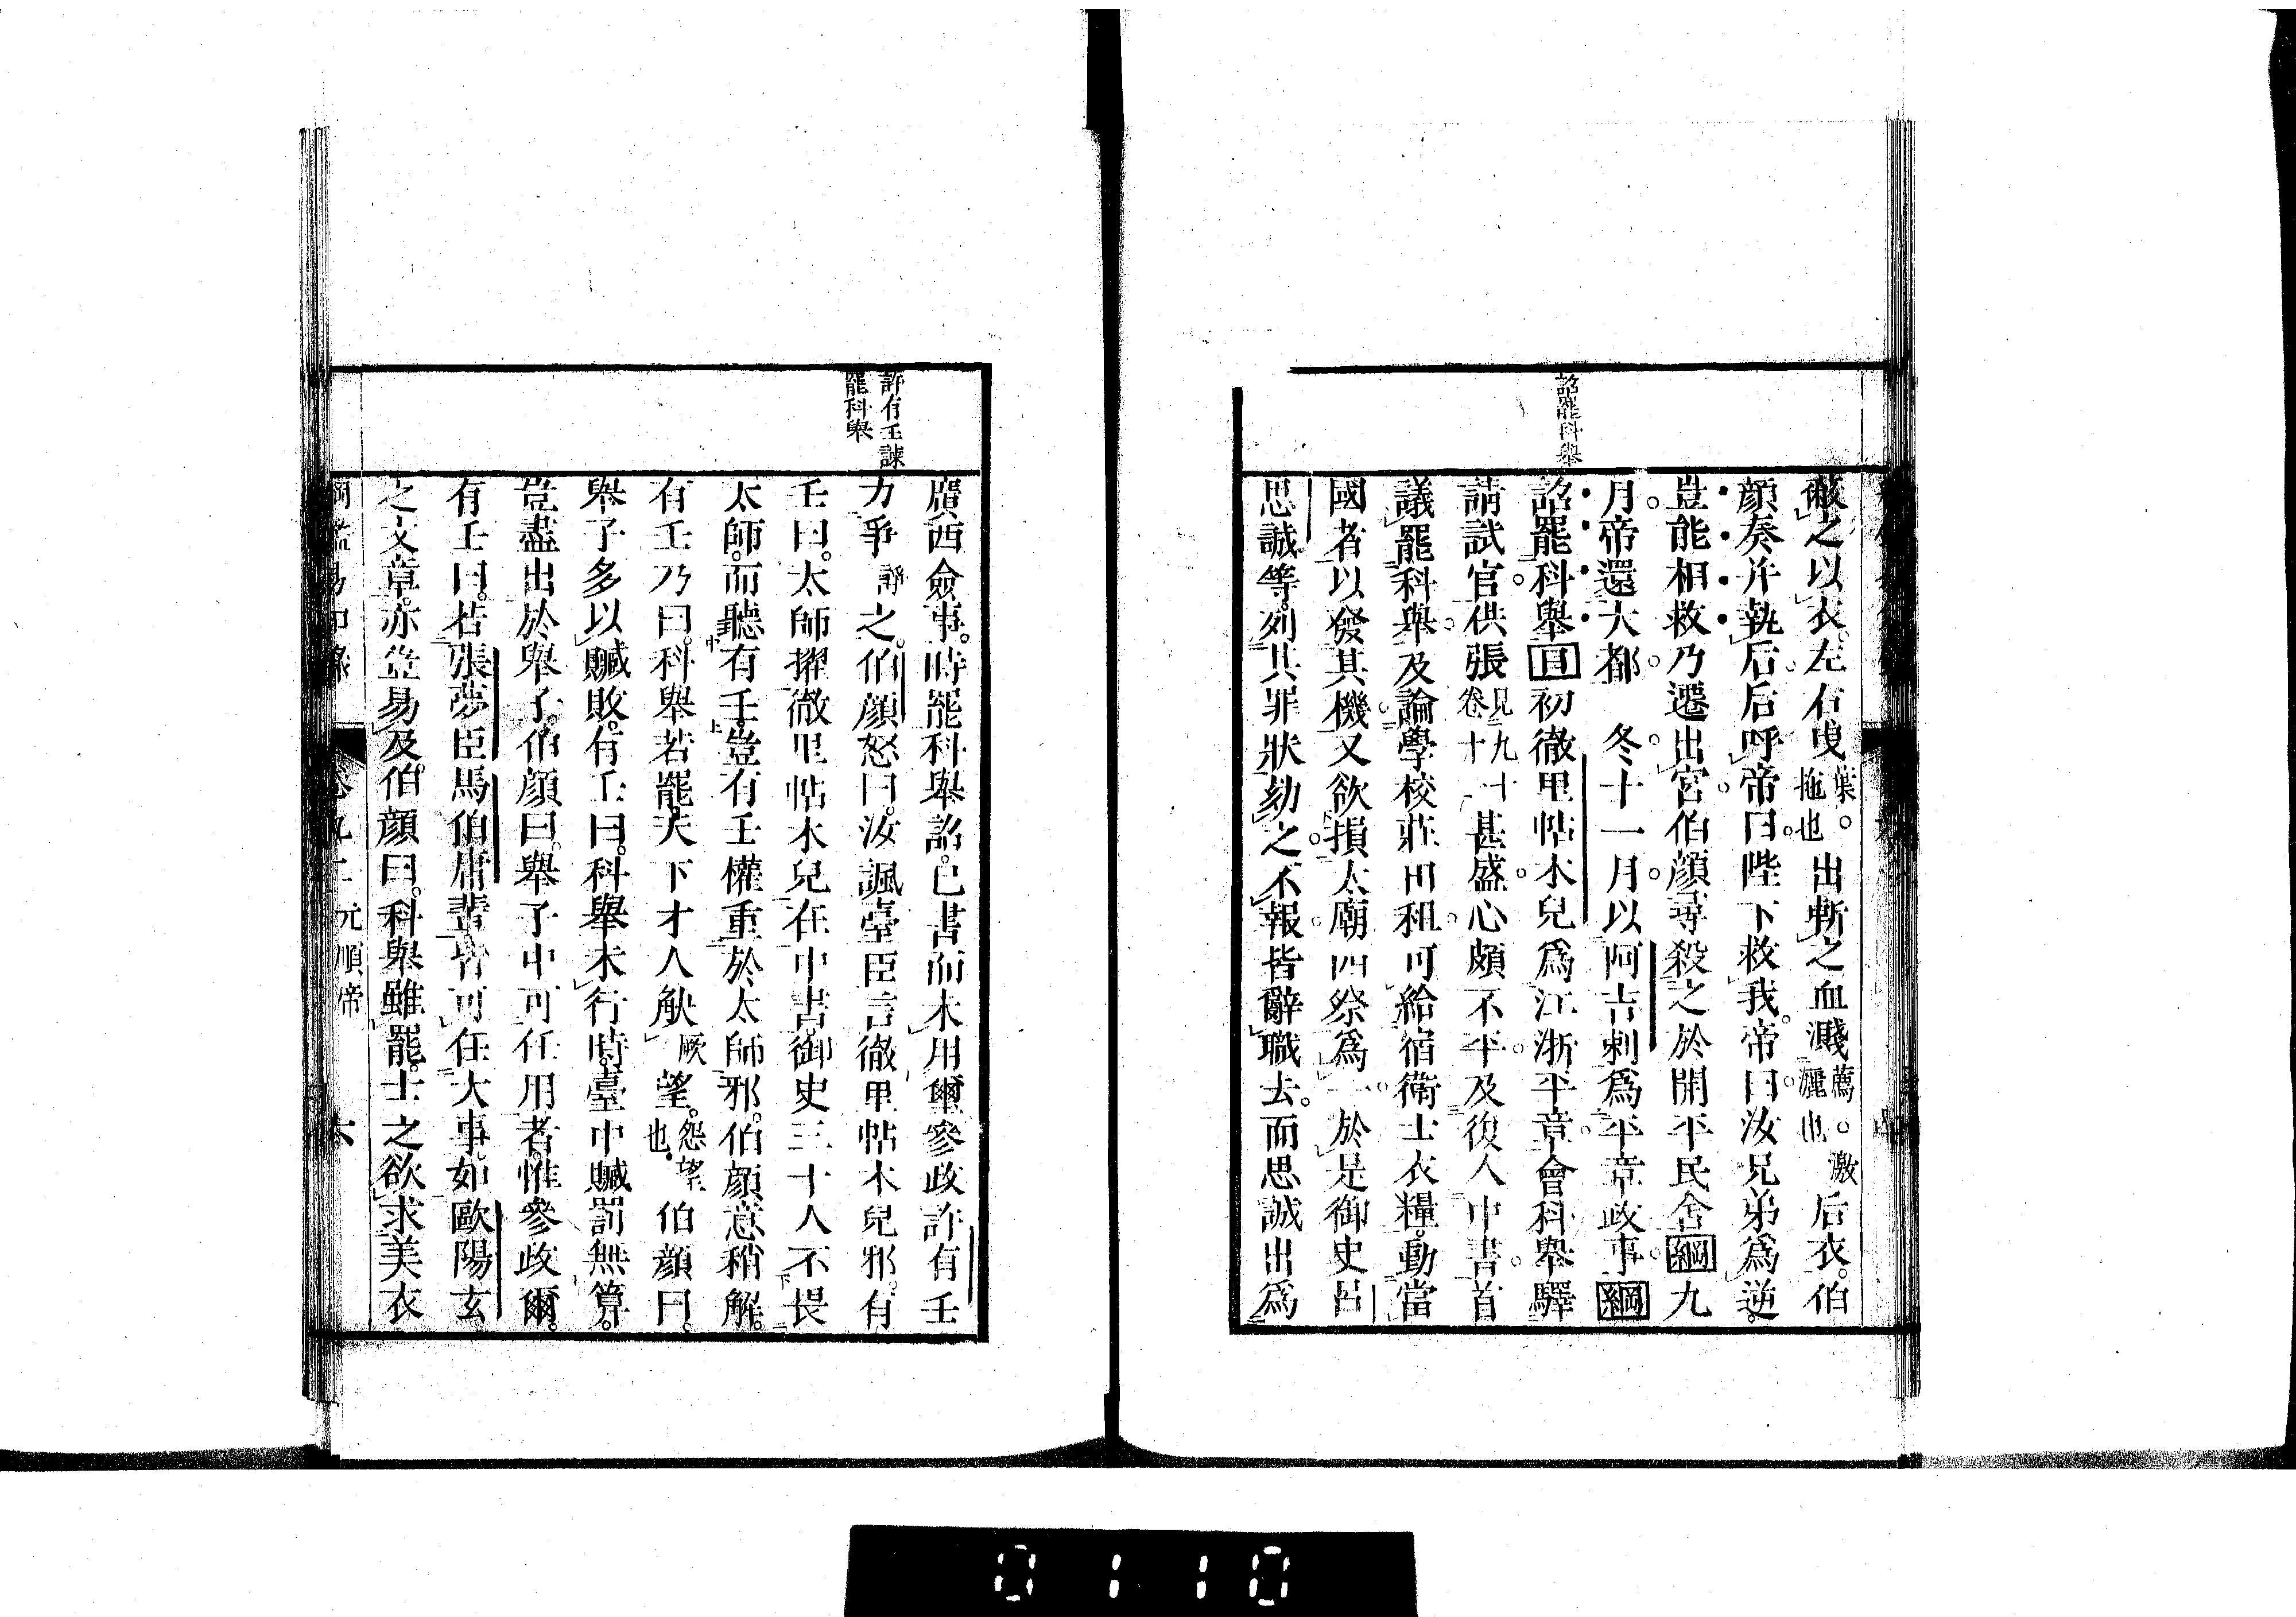 詔罷科舉
蔽之以衣。左右曳葉。拖也出斬之血濺薦。灑也激后衣。伯
顏奏并執后后呼帝曰陛下救我。帝曰汝兄弟爲逆。
豈能相救乃遷出宮伯顏尋殺之於開平民舍綱九
月帝還大都　冬十一月以阿吉剌爲平章政事綱
詔罷科舉目初徹里帖木兒爲江浙平章會科舉驛
請試官供張見九十一卷十甚盛心頗不平及復入中書首
議罷科舉及論學校莊田租可給宿衛士衣糧。動當
國者以發其機又欲損太廟四祭爲一於是御史呂
思誠等。列其罪狀劾之。不報皆辭職去。而思誠出爲
許有壬諫
罷科舉
廣西僉事。時罷科舉詔。已書而未用璽參政許有壬
力爭諍之。伯顏怒曰。汝諷臺臣言徹里帖木兒邪。有
壬曰。太師擢徹里帖木兒在中書。御史三十人不畏
太師。而聽有壬。豈有壬權重於太師邪。伯顏意稍解。
有壬乃曰。科舉若罷。天下才人觖厥望。怨望也。伯顏曰。
舉子多以贓敗。有壬曰。科舉未行時。臺中贓罰無算。
豈盡出於舉子。伯顏曰。舉子中可任用者。惟參政爾。
有壬曰。若張夢臣馬伯庸輩皆可任大事。如歐陽玄
之文章。亦豈易及。伯顏曰。科舉雖罷。士之欲求美衣
綱鑑易知錄　卷九二　元順帝　六
0110